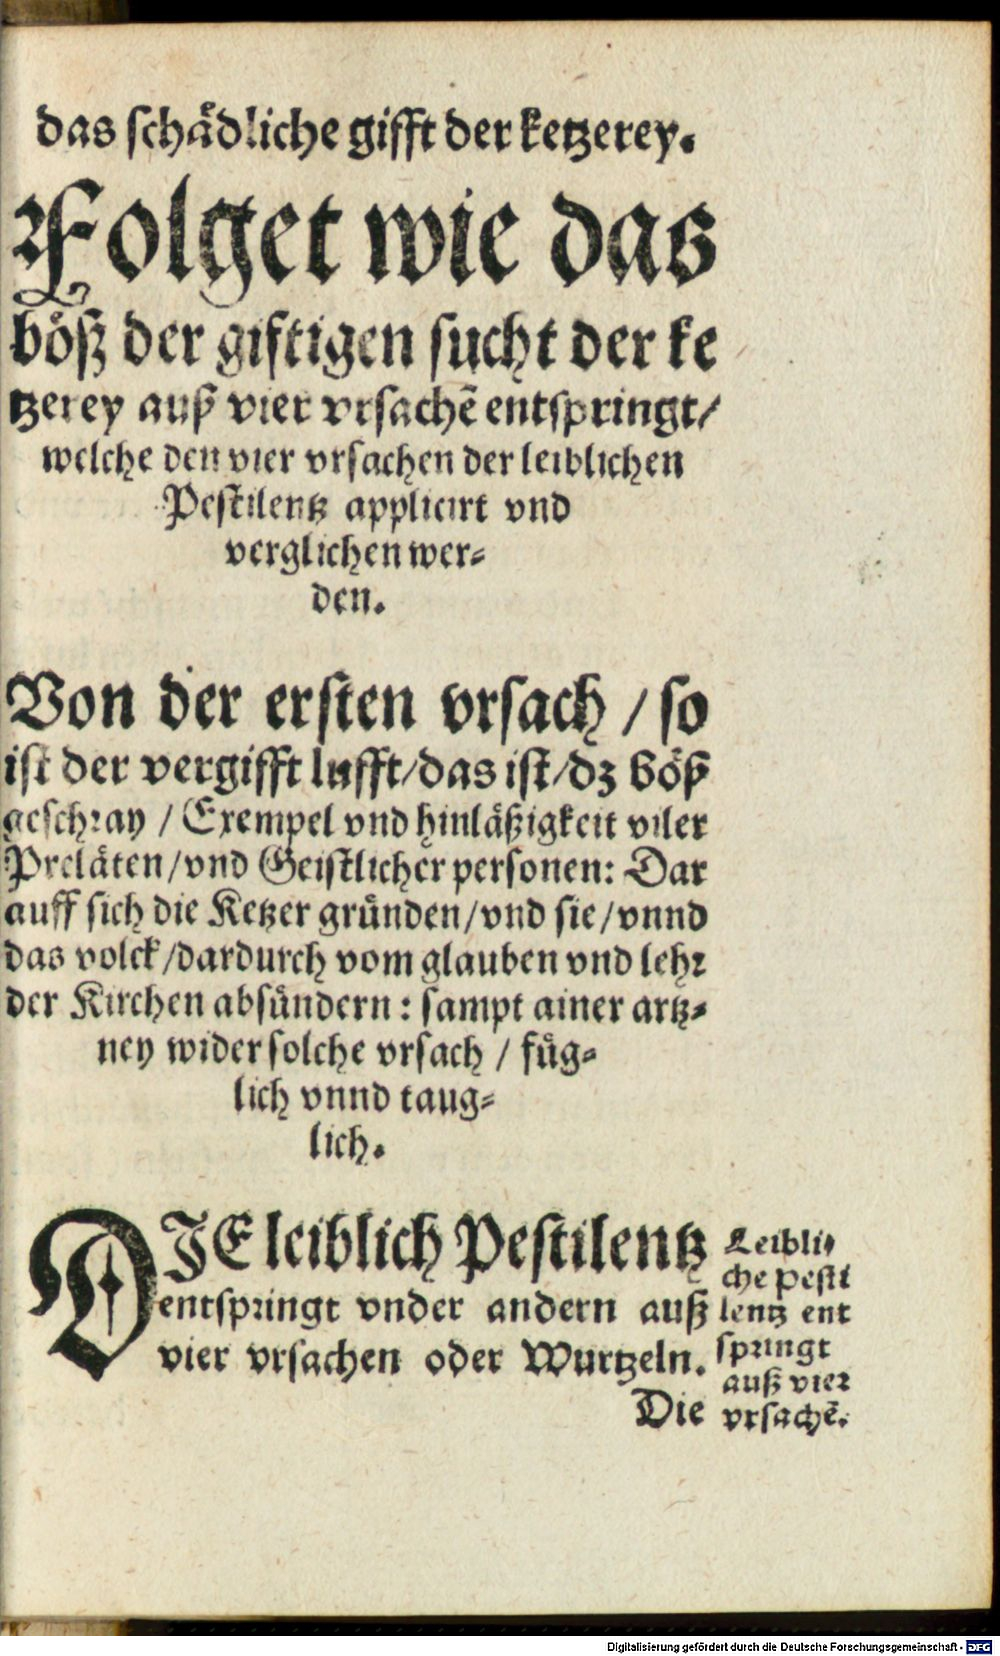 das schaͤdliche gifft der ketzerey.
Folget wie das
boͤß der giftigen sucht der ke
tzerey auß vier vrsachẽ entspringt/
welche den vier vrsachen der leiblichen
Pestilentz applicirt vnd
verglichen wer⸗
den.
Von der ersten vrsach / so
ist der vergifft lufft/das ist/dz boͤß
geschray / Exempel vnd hinlaͤßigkeit viler
Prelaͤten/vnd Geistlicher personen: Dar
auff sich die Ketzer gruͤnden/vnd sie/vnnd
das volck/dardurch vom glauben vnd lehr
der Kirchen absuͤndern: sampt ainer artz⸗
ney wider solche vrsach / fuͤg⸗
lich vnnd taug⸗
lich.
DIE leiblich Pestilentz
entspringt vnder andern auß
vier vrsachen oder Wurtzeln.
Die
Leibli⸗
che Pesti
lentz ent
springt
auß vier
vrsachẽ.
Digitalisierung gefördert durch die Deutsche Forschungsgemeinschaft - DFG